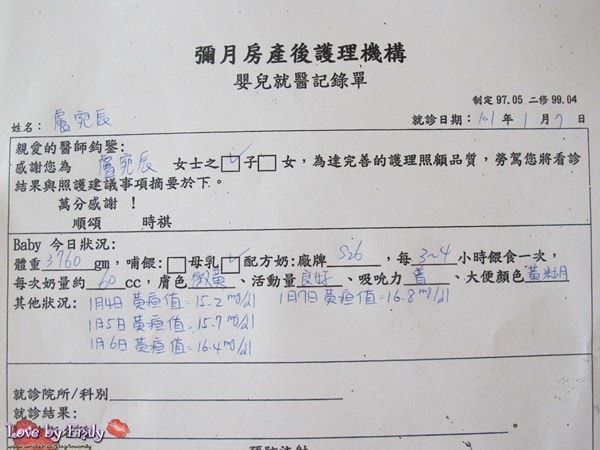 彌月房產後護理機構
嬰兒就醫記錄單
制定 97.05 二修 99.04
姓名: 盧宛辰 就診日期: 101 年 1 月 7 日
親愛的醫師鈞鑒:
感謝您為 盧宛辰 女士之☑子□女,為達完善的護理照顧品質,勞駕您將看診
結果與照護建議事項摘要於下。
萬分感謝!
順頌 時祺
Baby 今日狀況:
體重 3760 gm,哺餵:□母乳☑配方奶:廠牌 S26 ,每 3~4 小時餵食一次,
每次奶量約 60 cc,膚色 微黃 、活動量 良好 、吸吮力 、大便顏色 黃糊
其他狀況: 1月4日 黃疸值:15.2 mg/dl 1月7日 黃疸值:16.8 mg/dl
1月5日 黃疸值:15.7 mg/dl
1月6日 黃疸值:16.4 mg/dl
就診院所/科別
就診結果:
Love by Emily